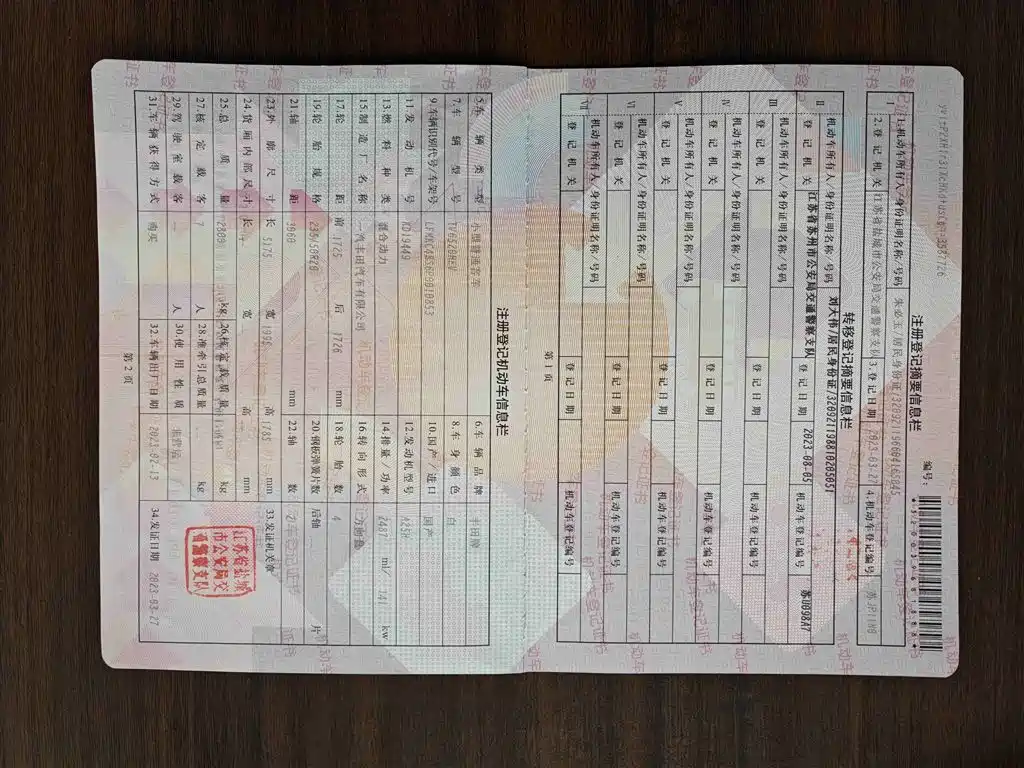 注册登记摘要信息栏
编号:
Ⅰ 1.机动车所有人/身份证明名称/号码 朱必玉/居民身份证/
2.登记机关 江苏省盐城市公安局交通警察支队 3.登记日期 2023-03-27 4.机动车登记编号
转移登记摘要信息栏
Ⅱ 机动车所有人/身份证明名称/号码 刘大伟/居民身份证/320921198810205051
登记机关 江苏省苏州市公安局交通警察支队 登记日期 2023-08-05 机动车登记编号 苏U098A7
Ⅲ 机动车所有人/身份证明名称/号码
登记机关 登记日期 机动车登记编号
Ⅳ 机动车所有人/身份证明名称/号码
登记机关 登记日期 机动车登记编号
Ⅴ 机动车所有人/身份证明名称/号码
登记机关 登记日期 机动车登记编号
Ⅵ 机动车所有人/身份证明名称/号码
登记机关 登记日期 机动车登记编号
Ⅶ 机动车所有人/身份证明名称/号码
登记机关 登记日期 机动车登记编号
第1页
注册登记机动车信息栏
5.车辆类型 小型普通客车 6.车辆品牌 丰田牌
7.车辆型号 8.车身颜色 白
9.车辆识别代号/车架号 10.国产/进口 国产
11.发动机号 12.发动机型号 A25H
13.燃料种类 混合动力 14.排量/功率 2487 ml/ 141 kw
15.制造厂名称 一汽丰田汽车有限公司 16.转向形式 方向盘
17.轮距 前 1725 后 1726 mm 18.轮胎数 4
19.轮胎规格 235/50R20 20.钢板弹簧片数 后轴 片
21.轴距 3060 mm 22.轴数 2
23.外廓尺寸 长 5175 宽 1995 高 1785 mm 33.发证机关章
24.货厢内部尺寸 长 宽 高 mm
25.总质量 kg 26.核定载质量 kg
27.核定载客 7 人 28.准牵引总质量 kg
29.驾驶室载客 人 30.使用性质 非营运
31.车辆获得方式 购买 32.车辆出厂日期 2023-02-13 34.发证日期 2023-03-27
江苏省盐城
市公安局交
通警察支队
第2页